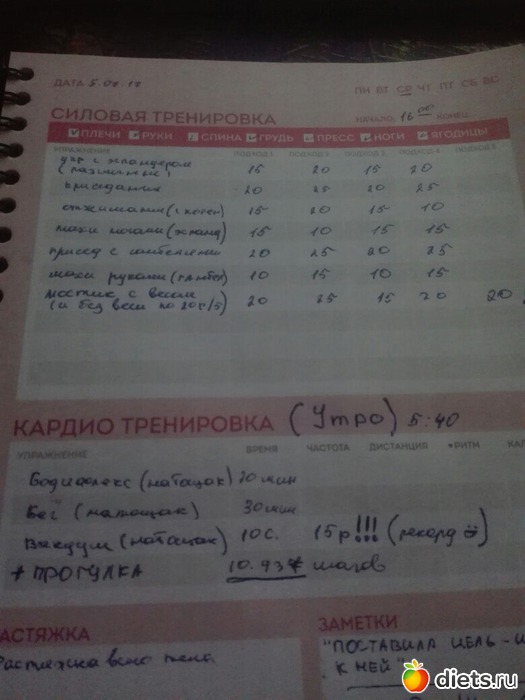 ДАТА 5.04.17 ПН ВТ СР ЧТ ПТ СБ ВС
СИЛОВАЯ ТРЕНИРОВКА НАЧАЛО: 16 00 КОНЕЦ:
ПЛЕЧИ РУКИ СПИНА ГРУДЬ ПРЕСС НОГИ ЯГОДИЦЫ
УПРАЖНЕНИЕ ПОДХОД 1 ПОДХОД 2 ПОДХОД 3 ПОДХОД 4 ПОДХОД 5
упр с эспандером
(различные) 15 20 15 20
приседания 20 25 20 25
отжимания (с колен) 15 20 15 10
махи ногами (эспанд) 15 10 15 15
присед с 20 25 20 25
махи руками (гантел) 10 15 10 15
мостик с весом
(и без веса по 20с/5) 20 25 15 20 20
КАРДИО ТРЕНИРОВКА (Утро) 5:40
УПРАЖНЕНИЕ ВРЕМЯ ЧАСТОТА ДИСТАНЦИЯ РИТМ КАЛ
Бодифлекс (натощак) 20 мин
Бег (натощак) 30 мин
Вакуум (натощак) 10 с. 15р!!! (рекорд)
+ ПРОГУЛКА 10.937 шагов
АСТЯЖКА
Растяжка всего тела.
ЗАМЕТКИ
"ПОСТАВИЛА ЦЕЛЬ - И
К НЕЙ"
diets.ru